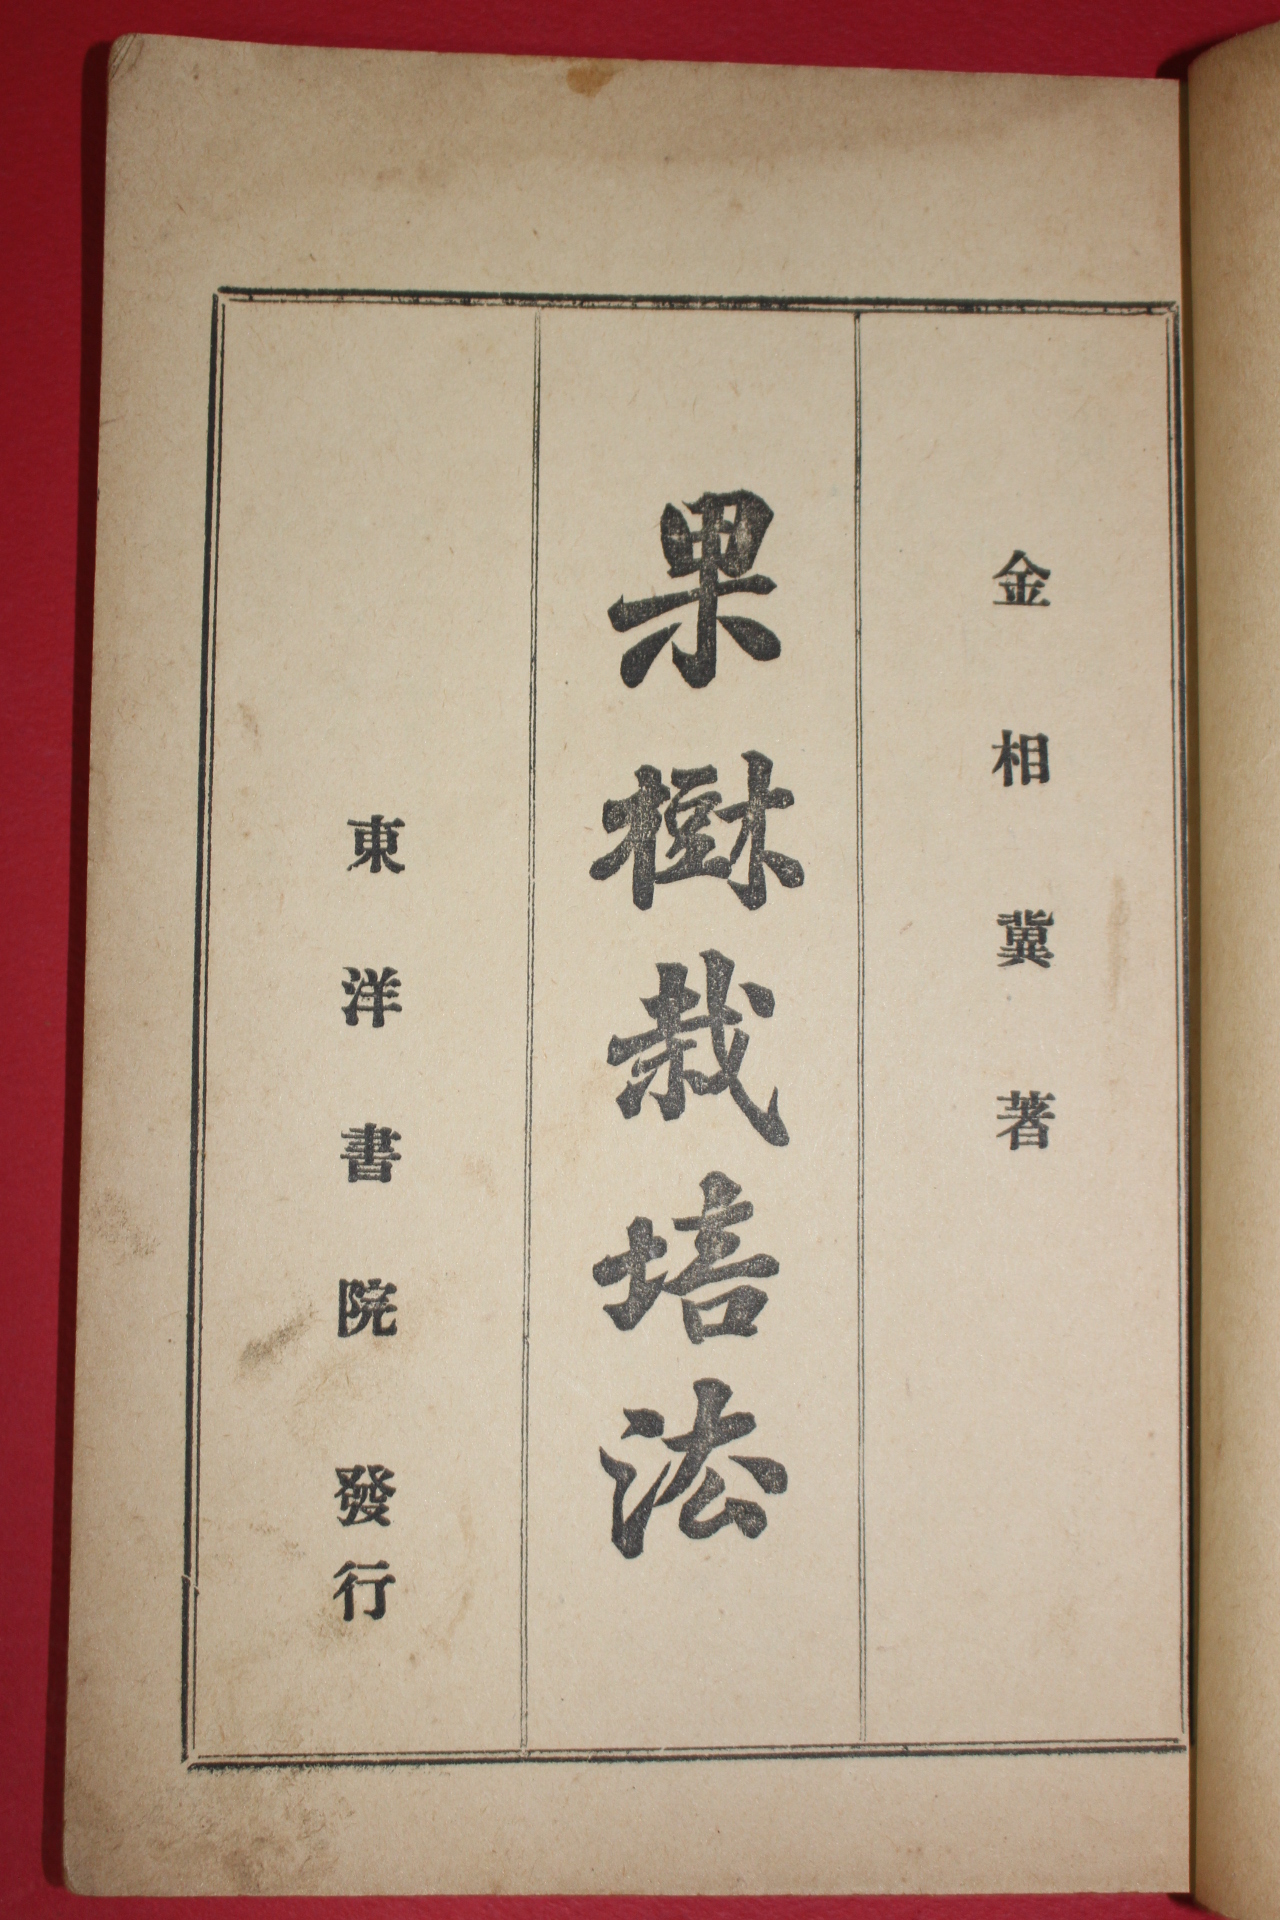 金相冀著
果樹栽培法
東洋書院發行